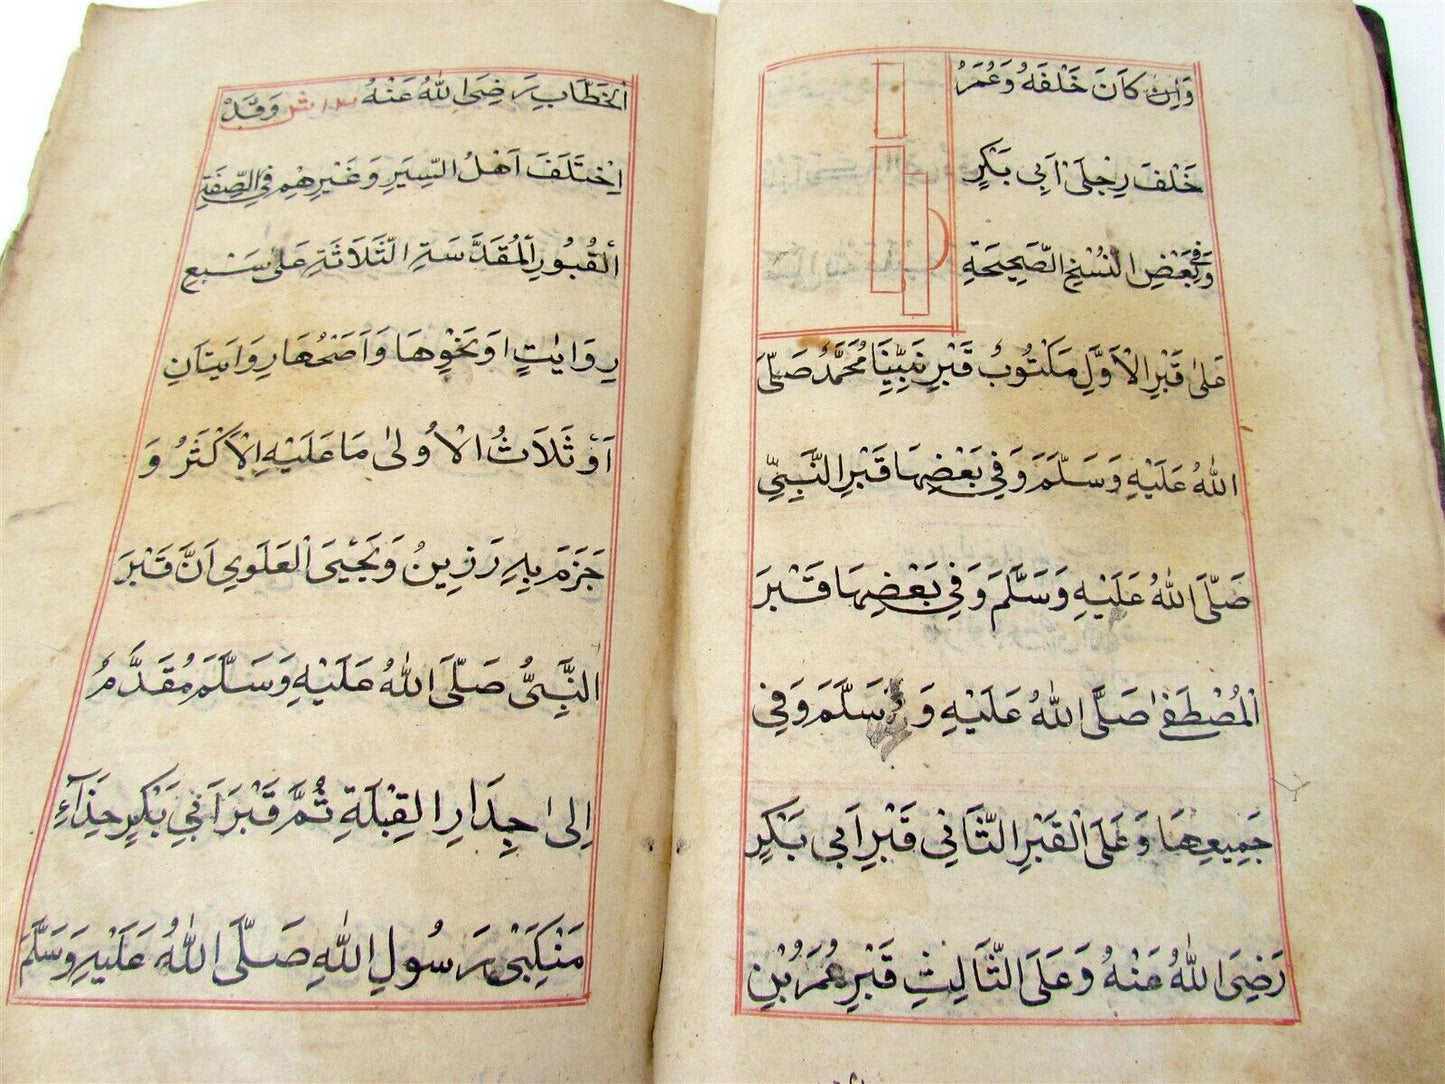 وَاِنْ كَانَ خَلْفَهُ وَعُمَرُ
خَلْفَ رِجْلَىْ اَبِى بَكْرٍ
وَفِى بَعْضِ النُّسَخِ الصَّحِيحَةِ
عَلىٰ قَبْرِ الْاَوَّلِ مَكْتُوبٌ قَبْرِ نَبِيِّنَا مُحَمَّدٌ صَلَّى
اللهُ عَلَيْهِ وَسَلَّمَ وَفِى بَعْضِهَا قَبْرِ النَّبِىِّ
صَلَّى اللهُ عَلَيْهِ وَسَلَّمَ وَفِى بَعْضِهَا قَبْرَ
اَلْمُصْطَفٰى صَلَّى اللهُ عَلَيْهِ وَ سَلَّمَ وَفِى
جَمِيعِهَا وَعَلَى الْقَبْرِ الثَّانِى قَبْرِ اَبِى بَكْرٍ
رَضِىَ اللهُ عَنْهُ وَعَلَى الثَّالِثِ قَبْرِ عُمَرُ بْنِ
الْخَطَّابِ رَضِىَ اللهُ عَنْهُ وَقَدْ
اِخْتَلَفَ اَهْلُ السِّيَرِ وَغَيْرِهِمْ فِى الصِّفَةِ
اَلْقُبُورِ اَلْمُقَدَّسَةِ الثَّلَاثَةِ عَلىٰ سَبْعِ
رِوَايٰتٍ اَوْ نَحْوِهَا وَاَصَحُّهَا رِوَايَتَانِ
اَوْ ثَلَاثُ الْاُولىٰ مَا عَلَيْهِ الْاَكْثَرُ وَ
جَزَمَ بِهِ رَزِينُ وَيَحْيَى الْعَلَوِى اَنَّ قَبْرَ
النَّبِىُّ صَلَّى اللهُ عَلَيْهِ وَسَلَّمَ مُقَدَّمٌ
اِلىٰ جِدَارِ الْقِبْلَةِ ثُمَّ قَبْرَ اَبِى بَكْرٍ حِذَآءَ
مَنْكِبَىْ رَسُولِ اللهِ صَلَّى اللهُ عَلَيْهِ وَسَلَّمَ